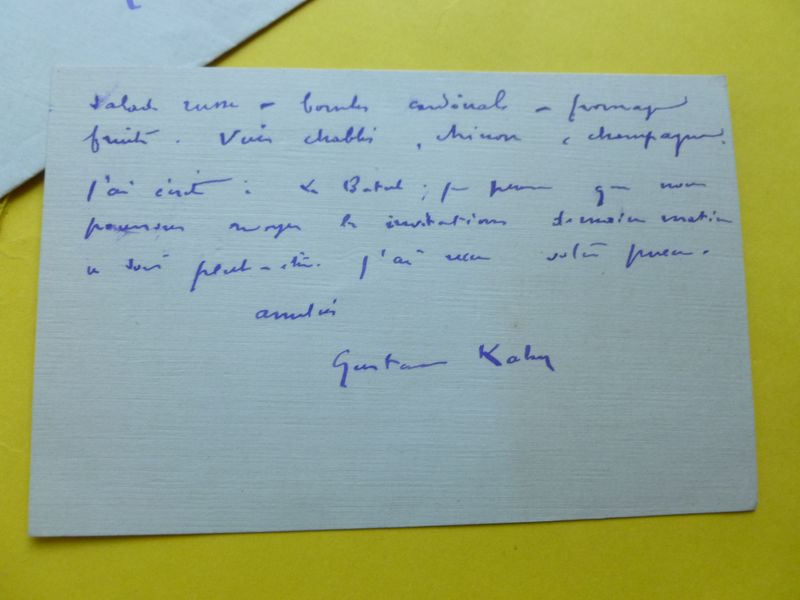 Salade russe – bombe cardinale – fromage
fruits. Vins chablis, chinon, champagne.
j'ai écrit à Le Batal ; je pense que nous
pourrons envoyer les invitations demain matin
ce soir peut-être. J'ai reçu votre pneu.
amitiés
Gustave Kahn